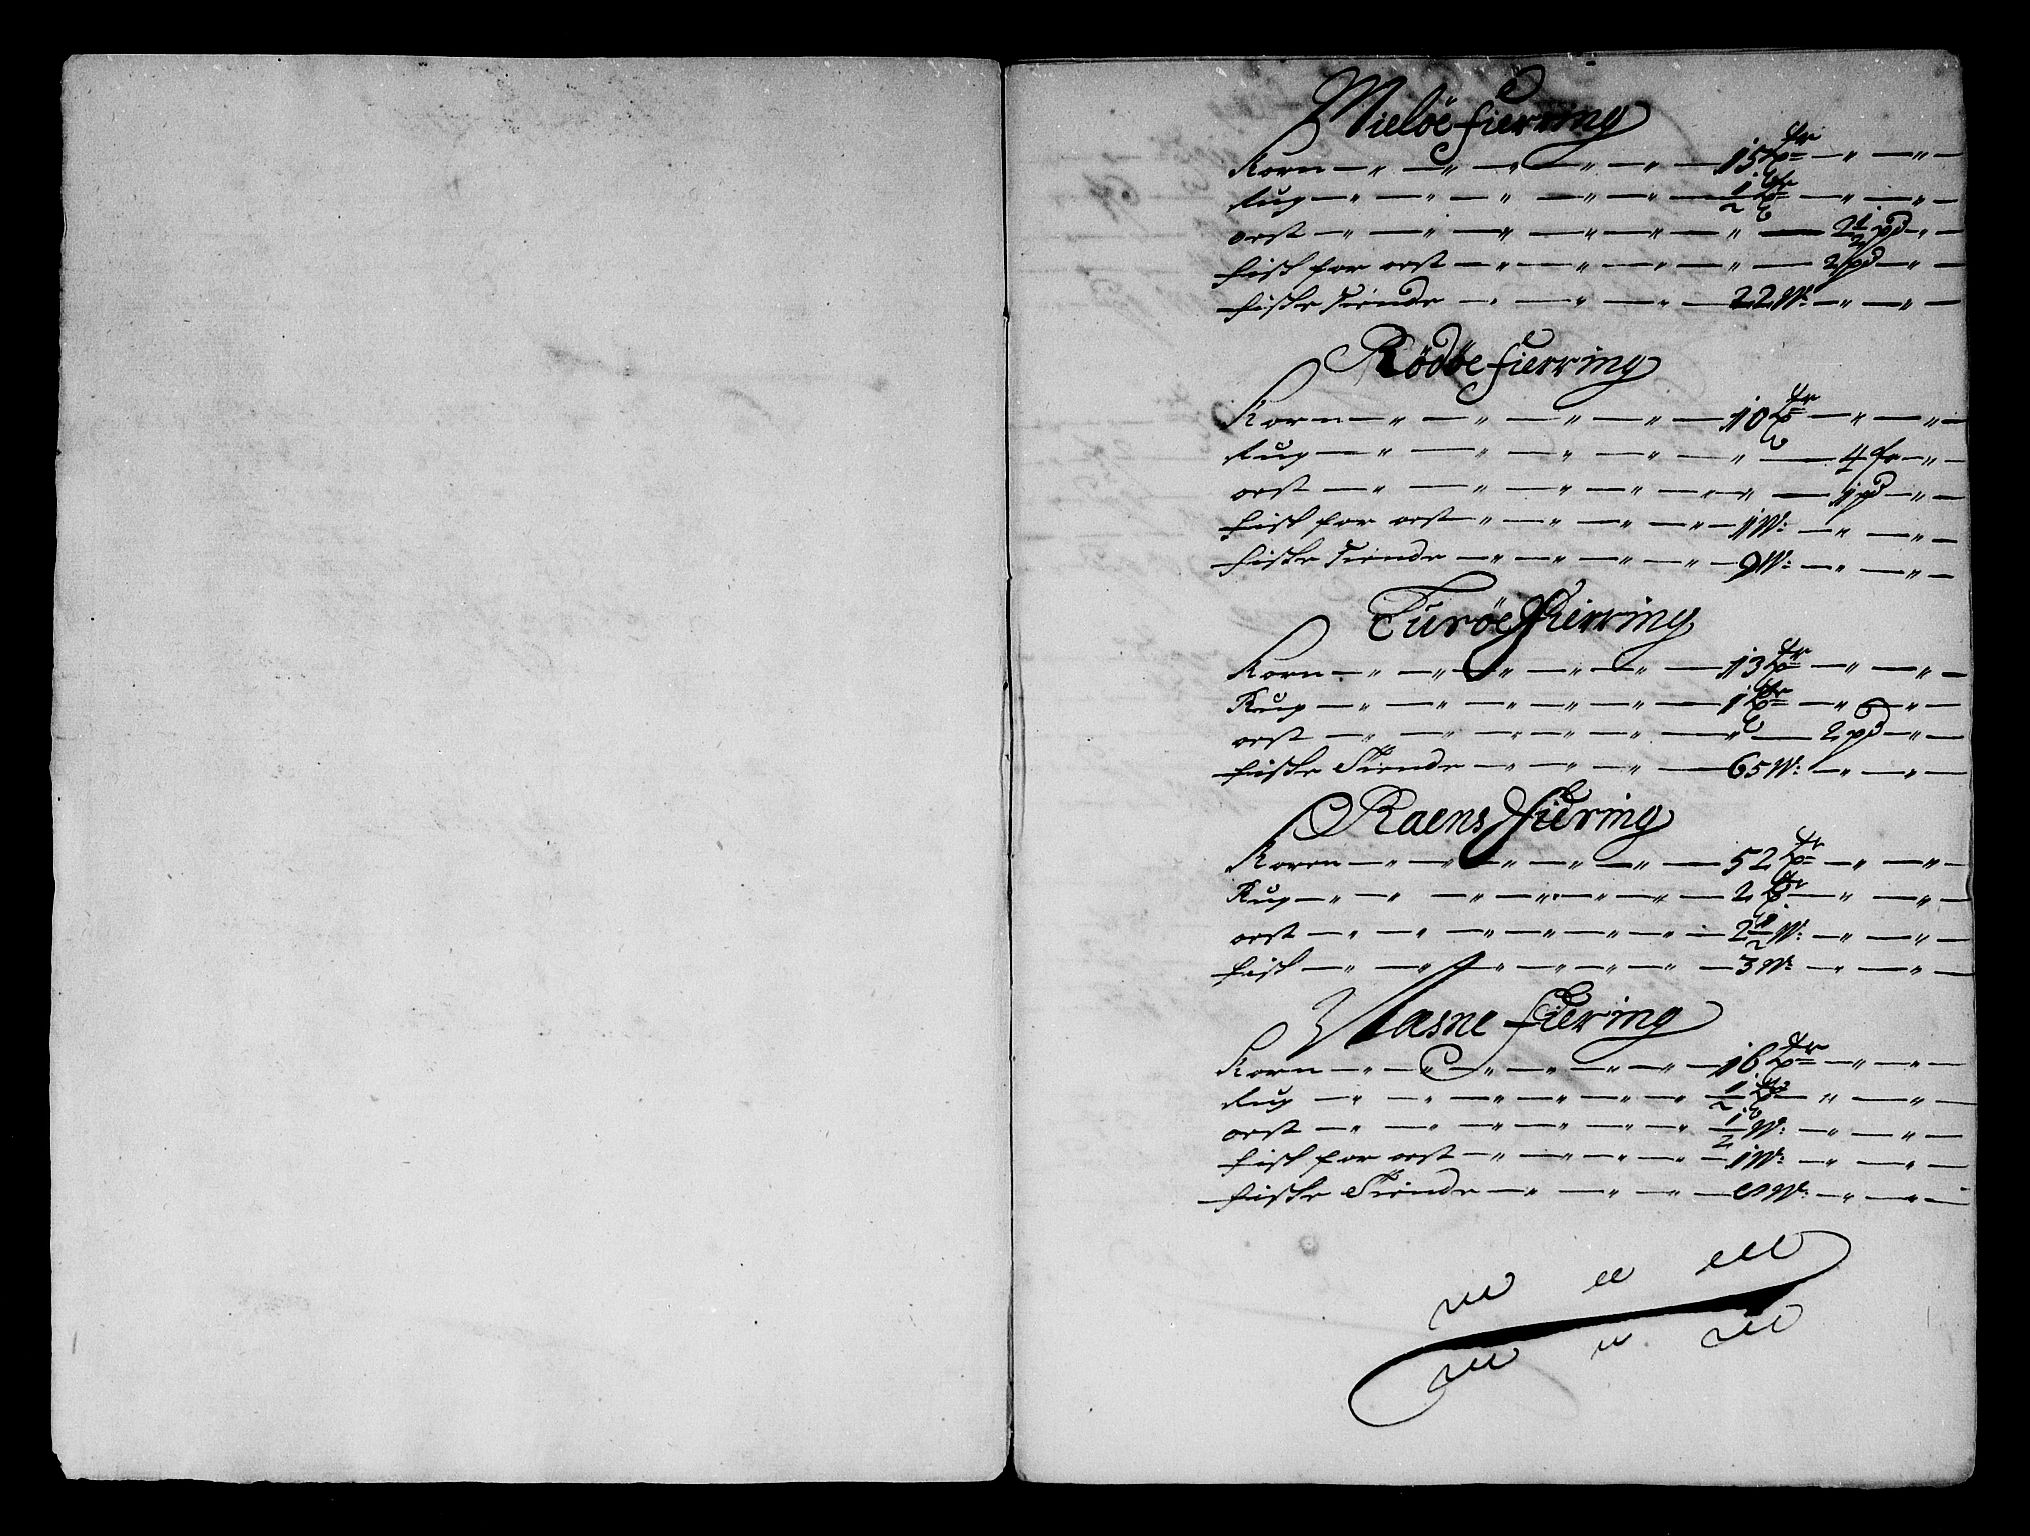 Mieløe fierring
Korn — " — " — " — " — " — 15 tr — " — " —
Rug — " — " — " — " — " — 1/2 tr — " — " —
oest — " — " — " — " — " — " — 2 1/2 pd — " —
fisk for oest — " — " — " — " — 2 pd — " —
fiske Tiende — " — " — " — 22 W: — " — " —
Rödöe fierring
Korn — " — " — " — " — " — 10 tr — " — " —
Rug — " — " — " — " — " — 4 fr — " —
oest — " — " — " — " — " — " — 1 pd — " —
fisk for oest — " — " — " — " — 1 W: — " — " —
fiske Tiende — " — " — " — " — 9 W: — " — " —
Turöe Fierring
Korn — " — " — " — " — " — 13 tr — " — " —
Rug — " — " — " — " — " — 1 tr — " — " —
oest — " — " — " — " — " — " — 2 pd — " —
fiske Tiende — " — " — " — 65 W: — " — " —
Raens Fiering
Koren — " — " — " — " — " — 52 tr — " — " —
Rug — " — " — " — " — " — " — 2 tr — " — " —
oest — " — " — " — " — " — " — 2 1/2 W: — " — " —
fisk — " — " — " — " — " — " — 3 W: — " — " —
Næsne fiering
Korn — " — " — " — " — " — " — 16 tr — " — " —
Rug — " — " — " — " — " — " — 1/2 tr — " — " —
oest — " — " — " — " — " — " — 1/2 W: — " — " —
fisk for oest — " — " — " — " — 1 W: — " — " —
fiske Tiende — " — " — " — W: — " — " —